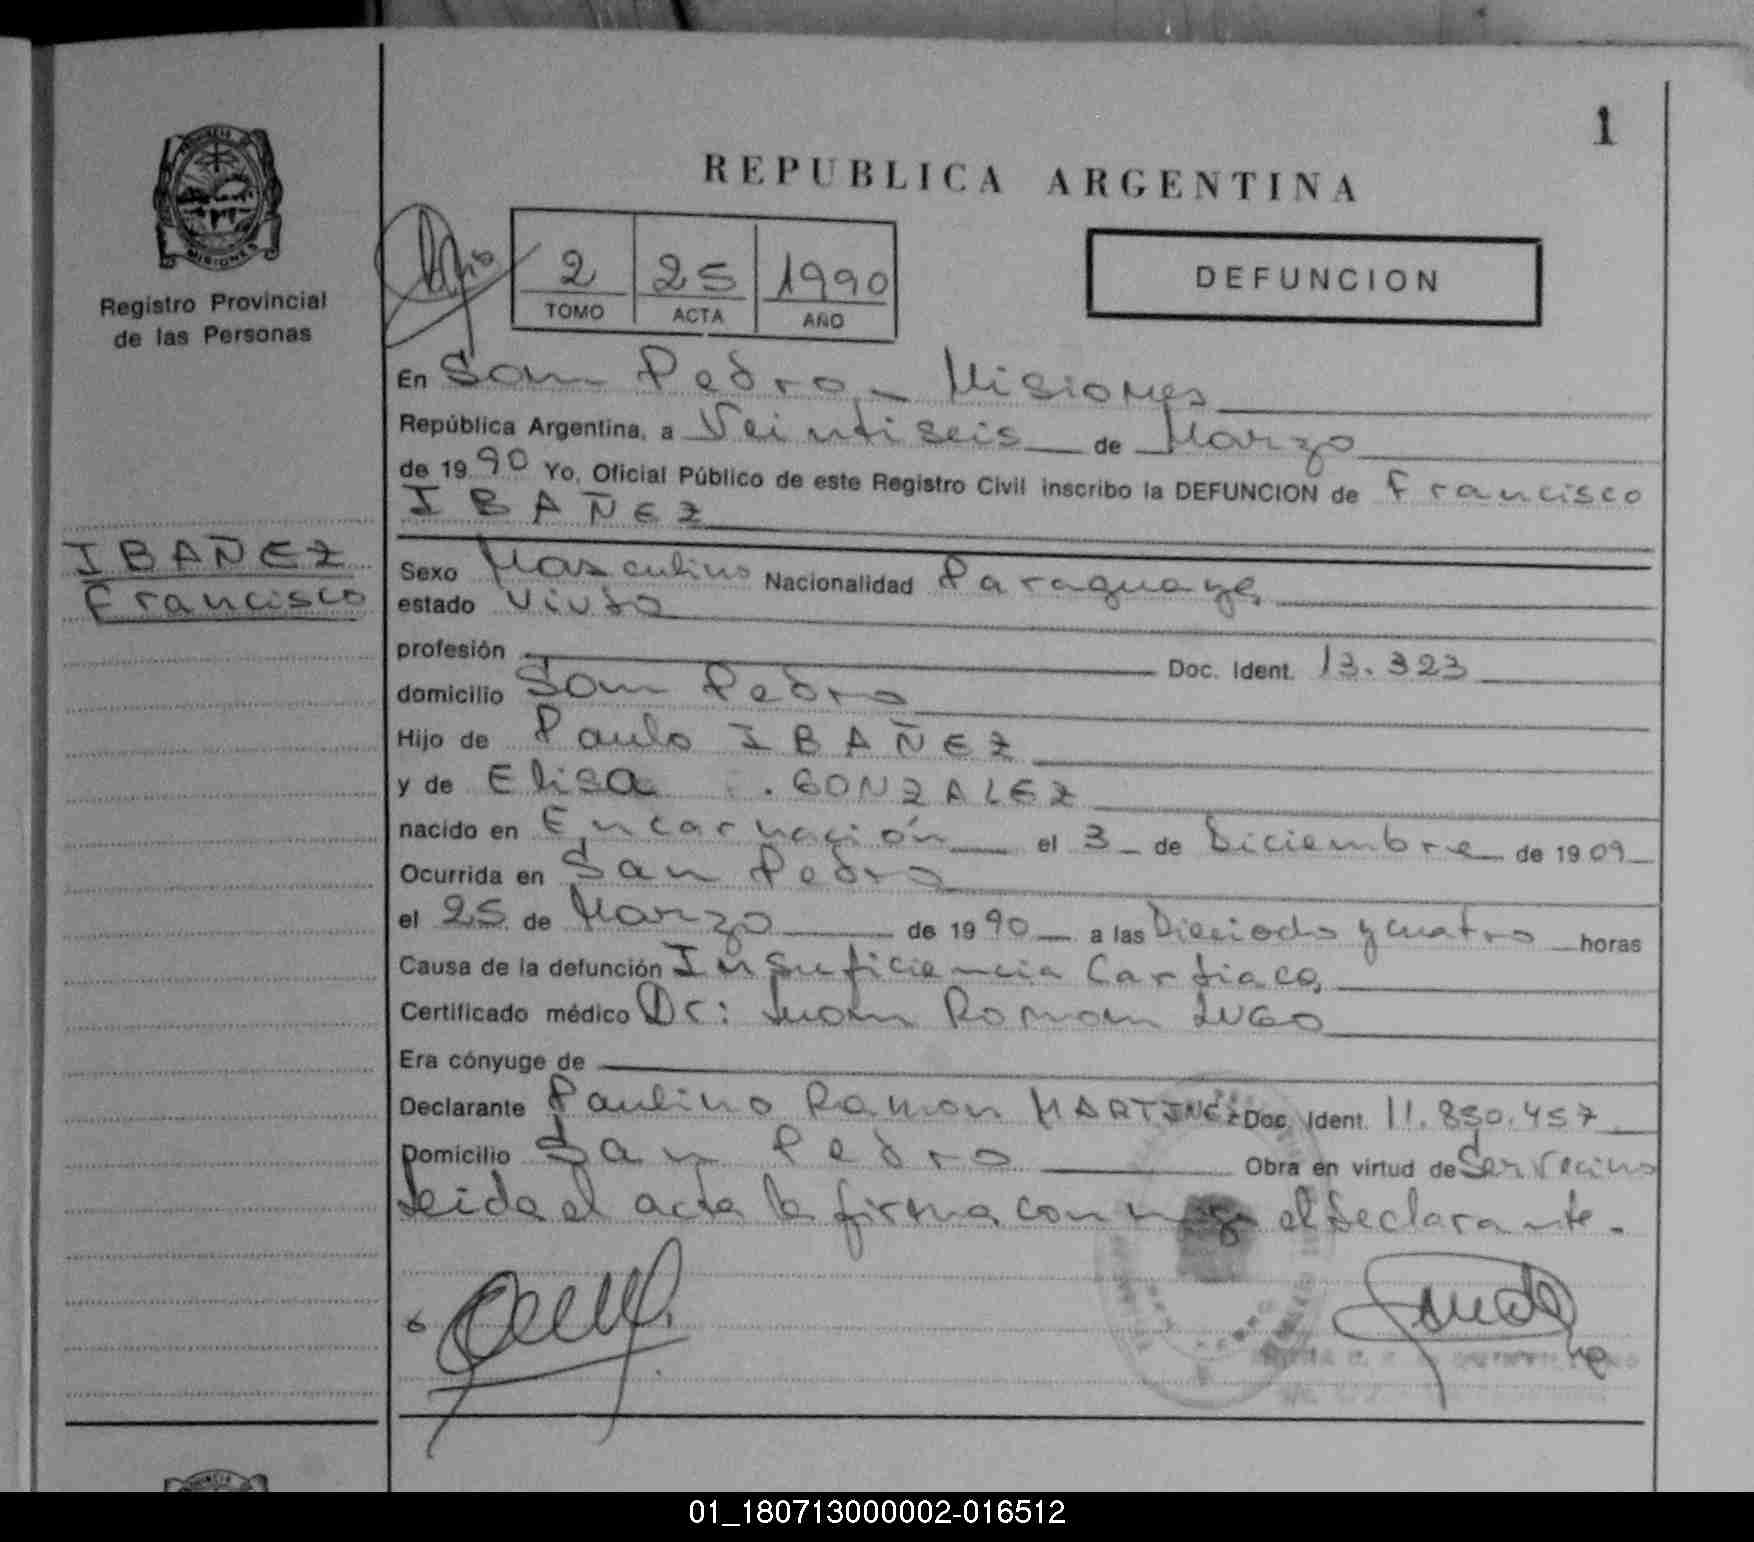 1
REPUBLICA ARGENTINA
PROVINCIA DE MISIONES
Registro Provincial
de las Personas
2 25 1990
TOMO ACTA AÑO
DEFUNCION
En San Pedro - Misiones
República Argentina, a Veintiseis de Marzo
de 1990 Yo, Oficial Público de este Registro Civil inscribo la DEFUNCION de Francisco
IBAÑEZ
IBAÑEZ
Francisco
Sexo Masculino Nacionalidad Paraguaya
estado Viudo
profesión Doc. Ident. 13.323
domicilio San Pedro
Hijo de Paulo IBAÑEZ
y de Elisa GONZALEZ
nacido en Encarnación el 3 de Diciembre de 1909
Ocurrida en San Pedro
el 25 de Marzo de 1990 a las Dieciocho y cuatro horas
Causa de la defunción Insuficiencia Cardiaca
Certificado médico Dr: Juan Roman LUGO
Era cónyuge de
Declarante Paulino Ramon MARTINEZ Doc. Ident. 11.850.457
Domicilio San Pedro Obra en virtud de Ser vecino
Leida el acta la firma conmigo el declarante.
01_180713000002-016512